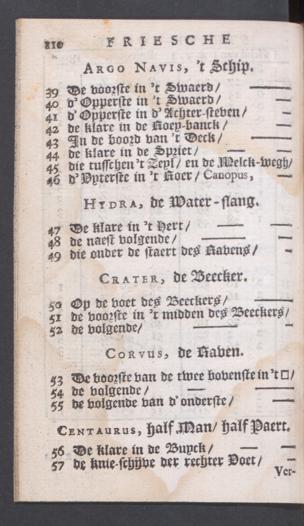 210 FRIESCHE
ARGO NAVIS, 't Schip.
39 De voorste in 't Swaerd/
40 d' Opperste in 't Swaerd/
41 d' Opperste in d' Achter-steven/
42 de klare in de Roey-banck/
43 In de boord van 't Deck/
44 de klare in de Spriet/
45 die tusschen 't Zeyl/ en de Melck-wegh/
46 d' Uyterste in 't Roer/ Canopus,
HYDRA, de Water-slang.
47 De klare in 't Hert/
48 de naest volgende/
49 die onder de staert des Ravens/
CRATER, de Beecker.
50 Op de voet des Beeckers/
51 de voorste in 't midden des Beeckers/
52 de volgende/
CORVUS, de Raven.
53 De voorste van de twee bovenste in 't □/
54 de volgende/
55 de volgende van d' onderste/
CENTAURUS, half Man/ half Paert.
56 De klare in de Buyck
57 de knie-schijve der rechter Voet/
Ver-